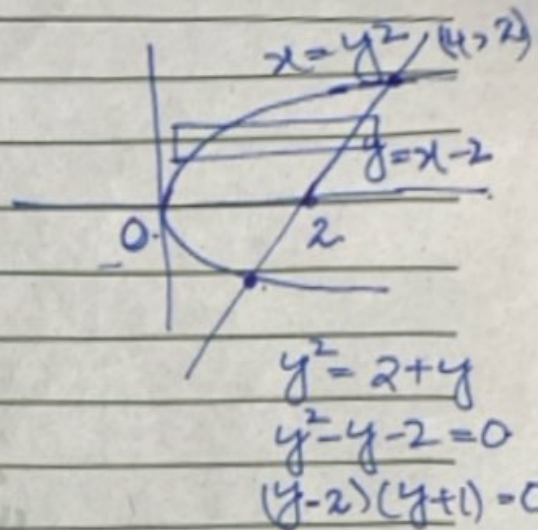 x=y² (4,2)
y=x-2
0 2
y²=2+y
y²-y-2=0
(y-2)(y+1)=0